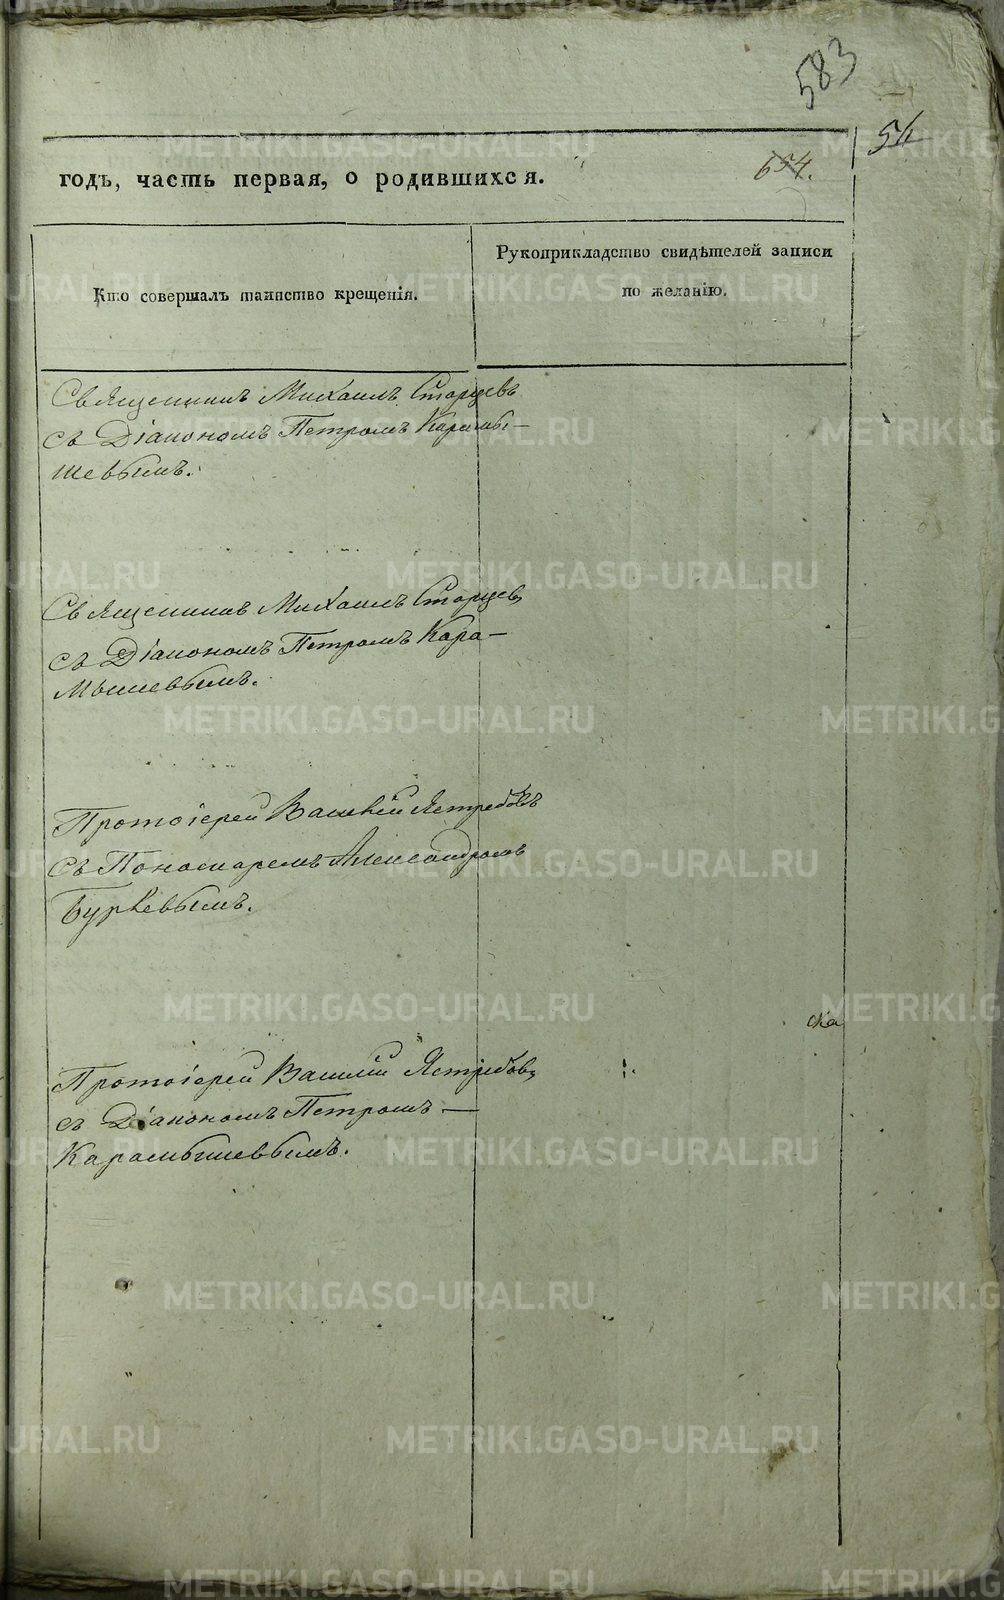 583
54
654.
годъ, часть первая, о родившихся.
Кто совершалъ таинство крещенія.
Рукоприкладство свидѣтелей записи
по желанію.
Священникъ Михаилъ Старцевъ
съ Діакономъ Петромъ Карамы-
шевымъ.
Священникъ Михаилъ Старцевъ
съ Діакономъ Петромъ Кара-
мышевымъ.
Протоіерей Василій Ястребовъ
съ Пономаремъ Александромъ
ска
Протоіерей Василій Ястребовъ
съ Діакономъ Петромъ —
Карамышевымъ.
METRIKI.GASO-URAL.RU